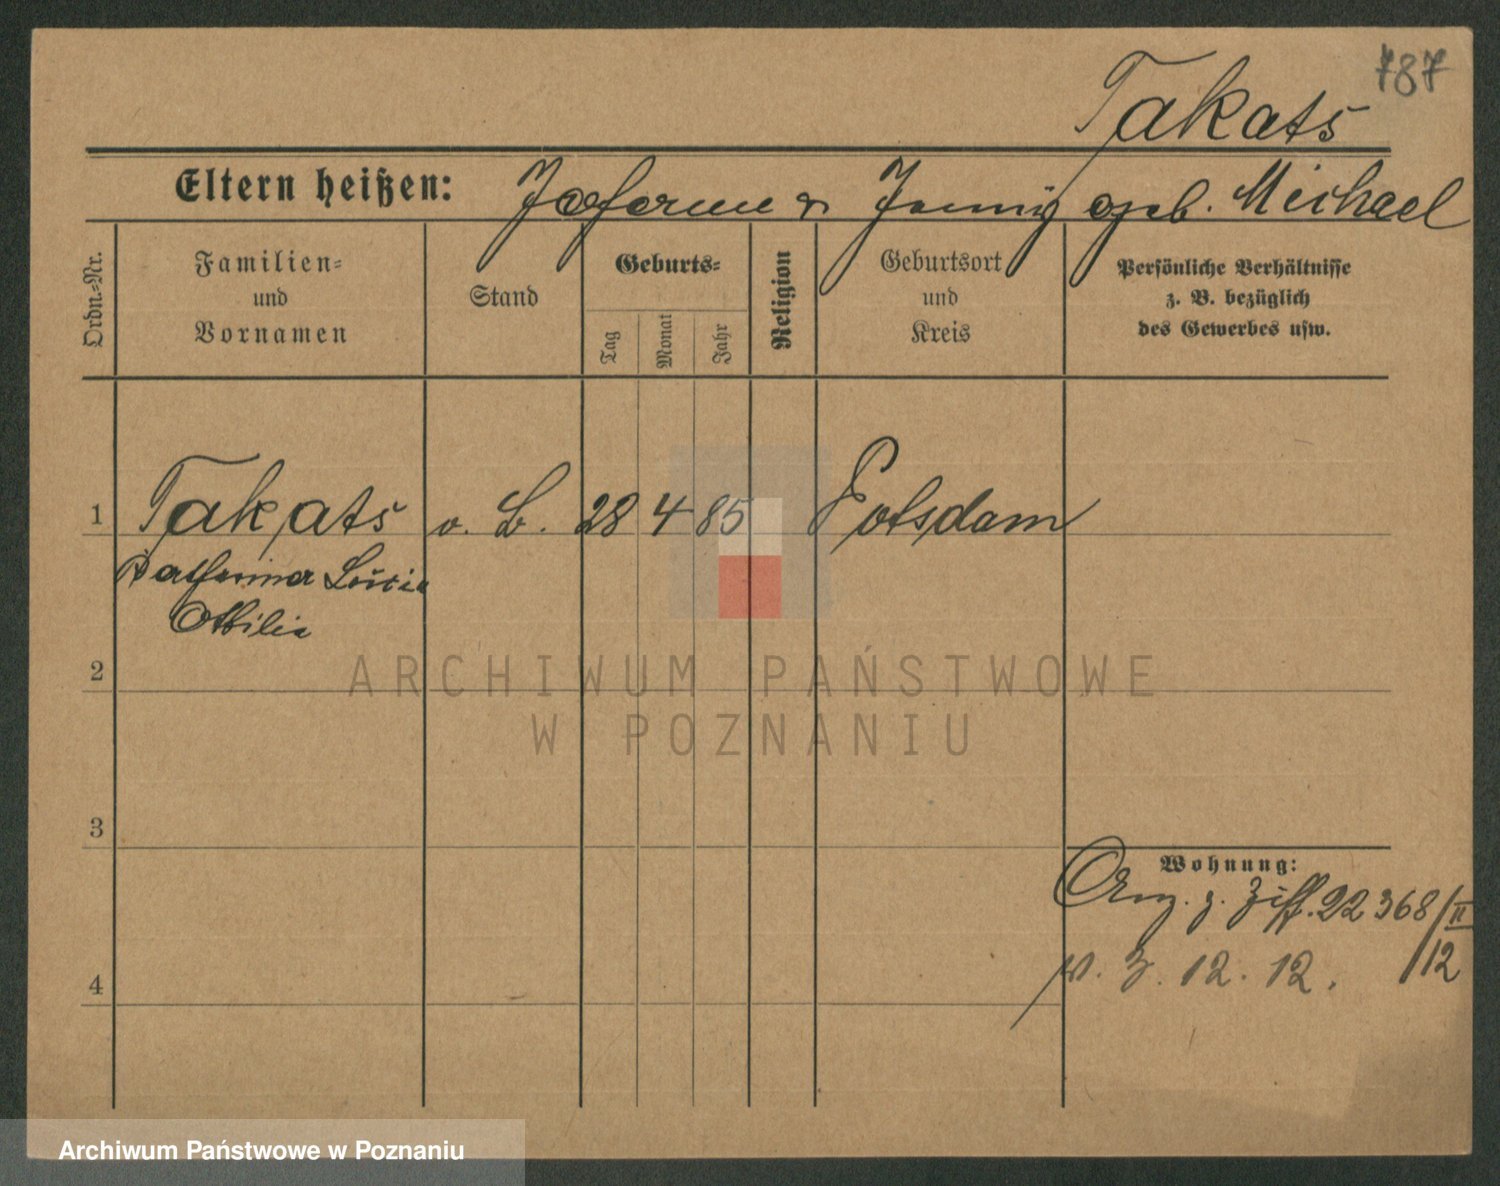 787
Takats
Eltern heißen: Johann u Jenny geb. Michael
Ordn.-Nr.
Familien-
und
Vornamen
Stand
Geburts-
Tag
Monat
Jahr
Religion
Geburtsort
und
Kreis
Persönliche Verhältnisse
z. B. bezüglich
des Gewerbes usw.
1 Takats o. B. 28 4 85 Potsdam
Katharina Lucia
Ottilia
2
ARCHIWUM PAŃSTWOWE
W POZNANIU
3
Wohnung:
Anz. z. Ziff. 22368/II
12
4
w. Z. 12. 12.
Archiwum Państwowe w Poznaniu